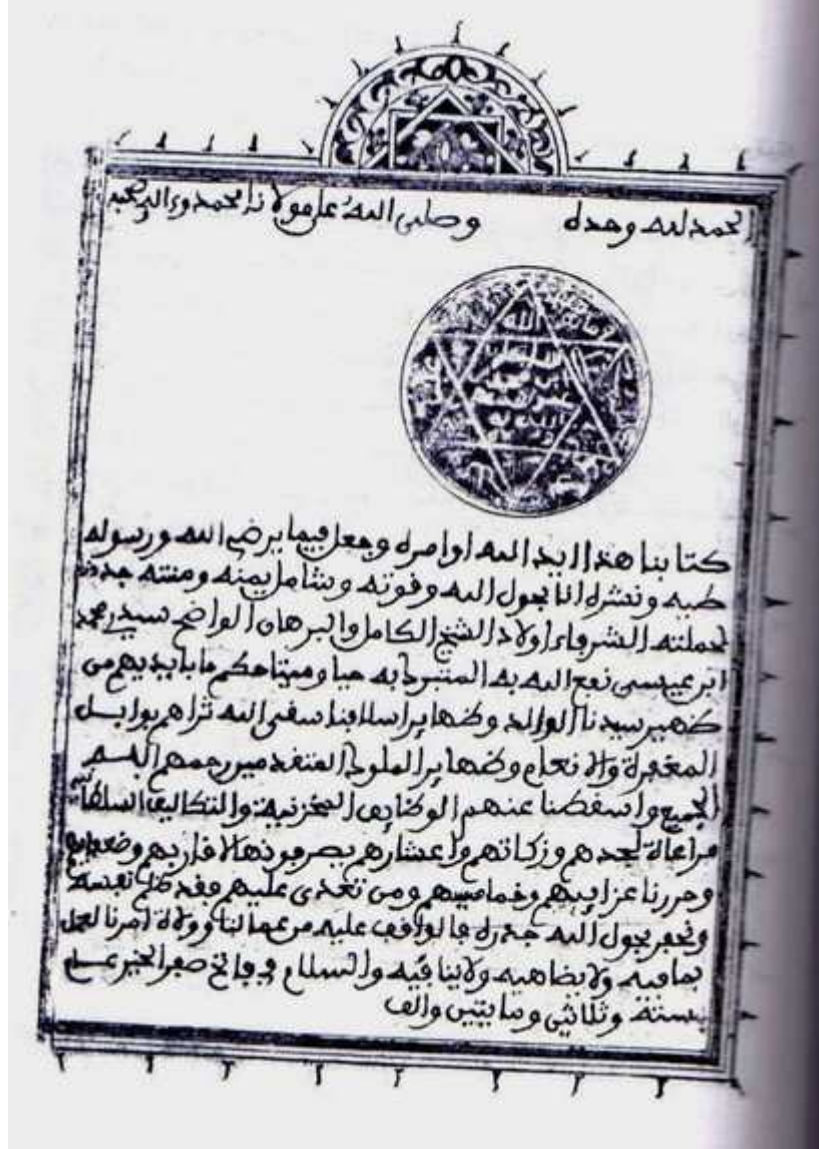 الحمد لله وحده وصلى الله على مولانا محمد وءاله وصحبه
الله
كتابنا هذا ايد الله اوامره وجعل فيما يرضي الله ورسوله
طيه ونشره اننا بحول الله وقوته وشامل يمنه ومنته جددنا
لحملته الشرفاء اولاد الشيخ الكامل والبرهان الواضح سيدي محمد
ابن عيسى نفع الله به المتبرك به حيا وميتا حكم ما بايديهم من
ظهير سيدنا الوالد وظهاير اسلافنا سقى الله ثراهم بوابل
المغفرة والانعام وظهاير الملوك المتقدمين رحمهم الله
الجميع واسقطنا عنهم الوظايف المخزنية والتكاليف السلطانية
مراعاة لجدهم وزكاتهم واعشارهم يصرفونها لاقاربهم وضعفايهم
وحررنا عزايبهم وخمامسهم ومن تعدى عليهم فقد ظلم نفسه
ونحفر بحول الله جذره فالواقف عليه من عمالنا وولاة امرنا يعمل
بما فيه ولا يضاهيه ولا ينافيه والسلام في فاتح صفر الخير عام
ستة وثلاثين ومايتين والف